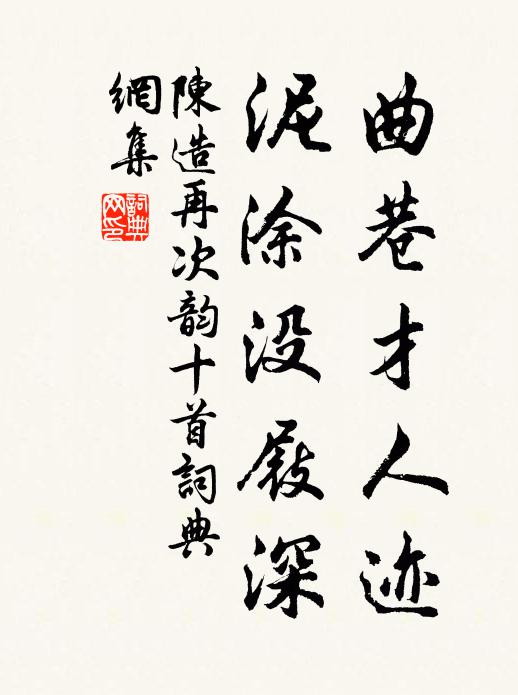 曲巷才人迹
泥涂没屐深
陳造再次韵十首詞典
網集
詞典
网印